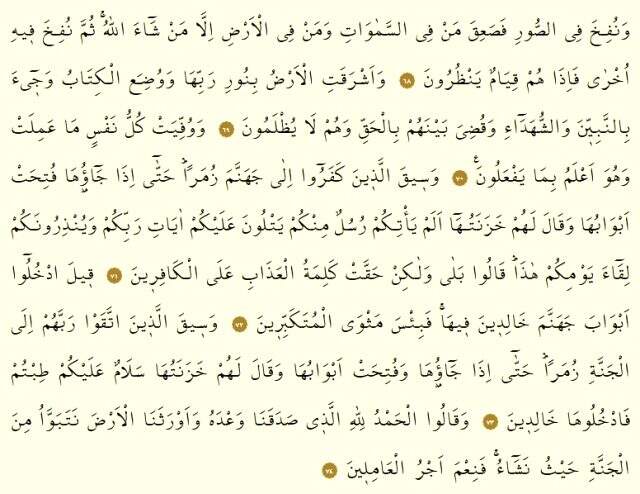 وَنُفِخَ فِى الصُّورِ فَصَعِقَ مَنْ فِى السَّمٰوَاتِ وَمَنْ فِى الْاَرْضِ اِلَّا مَنْ شَٓاءَ اللّٰهُۜ ثُمَّ نُفِخَ ف۪يهِ
اُخْرٰى فَاِذَا هُمْ قِيَامٌ يَنْظُرُونَ ﴿٦٨﴾ وَاَشْرَقَتِ الْاَرْضُ بِنُورِ رَبِّهَا وَوُضِعَ الْكِتَابُ وَج۪ٓيءَ
بِالنَّبِيّ۪نَ وَالشُّهَدَٓاءِ وَقُضِيَ بَيْنَهُمْ بِالْحَقِّ وَهُمْ لَا يُظْلَمُونَ ﴿٦٩﴾ وَوُفِّيَتْ كُلُّ نَفْسٍ مَا عَمِلَتْ
وَهُوَ اَعْلَمُ بِمَا يَفْعَلُونَ۟ ﴿٧٠﴾ وَس۪يقَ الَّذ۪ينَ كَفَرُٓوا اِلٰى جَهَنَّمَ زُمَراًۜ حَتّٰٓى اِذَا جَٓاؤُ۫هَا فُتِحَتْ
اَبْوَابُهَا وَقَالَ لَهُمْ خَزَنَتُـهَٓا اَلَمْ يَأْتِكُمْ رُسُلٌ مِنْكُمْ يَتْلُونَ عَلَيْكُمْ اٰيَاتِ رَبِّكُمْ وَيُنْذِرُونَكُمْ
لِقَٓاءَ يَوْمِكُمْ هٰذَاۜ قَالُوا بَلٰى وَلٰكِنْ حَقَّتْ كَلِمَةُ الْعَذَابِ عَلَى الْكَافِر۪ينَ ﴿٧١﴾ ق۪يلَ ادْخُلُٓوا
اَبْوَابَ جَهَنَّمَ خَالِد۪ينَ ف۪يهَاۚ فَبِئْسَ مَثْوَى الْمُتَكَبِّر۪ينَ ﴿٧٢﴾ وَس۪يقَ الَّذ۪ينَ اتَّقَوْا رَبَّهُمْ اِلَى
الْجَنَّةِ زُمَراًۜ حَتّٰٓى اِذَا جَٓاؤُ۫هَا وَفُتِحَتْ اَبْوَابُهَا وَقَالَ لَهُمْ خَزَنَتُهَا سَلَامٌ عَلَيْكُمْ طِبْتُمْ
فَادْخُلُوهَا خَالِد۪ينَ ﴿٧٣﴾ وَقَالُوا الْحَمْدُ لِلّٰهِ الَّذ۪ي صَدَقَنَا وَعْدَهُ وَاَوْرَثَنَا الْاَرْضَ نَتَبَوَّاُ مِنَ
الْجَنَّةِ حَيْثُ نَشَٓاءُۚ فَنِعْمَ اَجْرُ الْعَامِل۪ينَ ﴿٧٤﴾